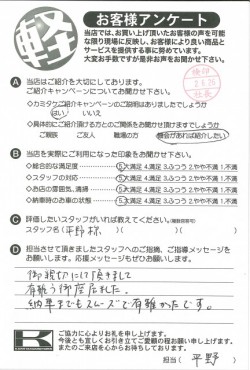 軽
お客様アンケート
当店では、お買い上げ頂いたお客様の声を可能
な限り現場に反映し、お客様により良い商品と
サービスを提供する事に努めています。
大変お手数ですが是非お声をお聞かせ下さい。
A 当店はご紹介を大切にしております。
ご紹介キャンペーンについてお聞かせ下さい。
◇カミタケご紹介キャンペーンのご説明はありましたでしょうか
はい いいえ
◇具体的にご紹介頂ける方とのご関係をお聞かせ頂けますでしょうか
ご親族 ご友人 職場の方 機会があれば紹介したい
B 当店を実際にご利用になった印象をお聞かせ下さい。
◇総合的な満足度 ⑤大満足 4.満足 3.ふつう 2.やや不満 1.不満
◇スタッフの対応 ⑤大満足 4.満足 3.ふつう 2.やや不満 1.不満
◇お店の雰囲気、清掃 ⑤大満足 4.満足 3.ふつう 2.やや不満 1.不満
◇納車時のお車の状態 ⑤大満足 4.満足 3.ふつう 2.やや不満 1.不満
C 評価したいスタッフがいれば教えてください。(複数回答可)
スタッフ名( 平野様
D 担当させて頂きましたスタッフへのご指摘、ご指導メッセージを
お願いします。応援メッセージもぜひお願いします。
御親切にして頂きまして
有難う御座居ました。
納車までもスムーズで有難かったです。
K
ご協力に心よりお礼を申し上げます。
今後とも宜しくお引き立てご愛顧の程お願い申し上げます。
またのご来店を心からお待ちしております。
担当( 平野 )